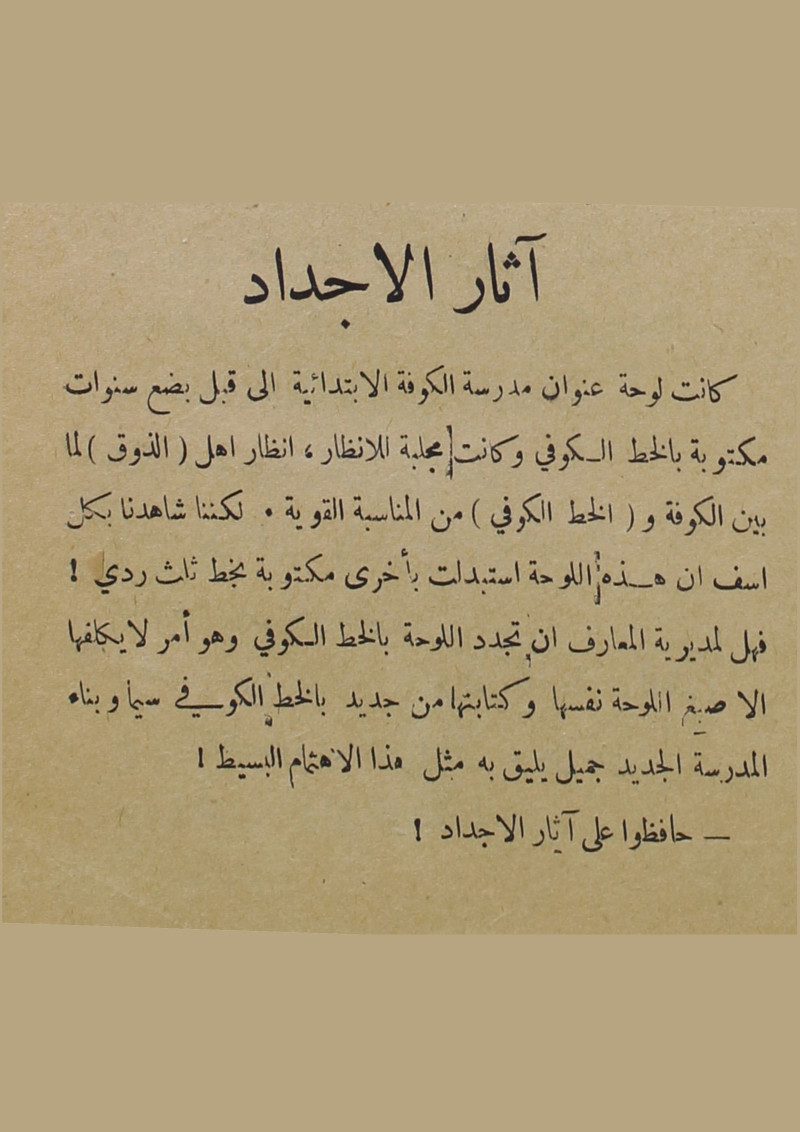 آثار الاجداد
كانت لوحة عنوان مدرسة الكوفة الابتدائية الى قبل بضع سنوات
مكتوبة بالخط الكوفي وكانت مجلبة للانظار ، انظار اهل ( الذوق ) لما
بين الكوفة و ( الخط الكوفي ) من المناسبة القوية . لكننا شاهدنا بكل
اسف ان هذه اللوحة استبدلت بأخرى مكتوبة بخط ثلث ردي !
فهل لمديرية المعارف ان تجدد اللوحة بالخط الكوفي وهو أمر لا يكلفها
الا صبغ اللوحة نفسها وكتابتها من جديد بالخط الكوفي سيما وبناء
المدرسة الجديد جميل يليق به مثل هذا الاهتمام البسيط !
— حافظوا على آثار الاجداد !